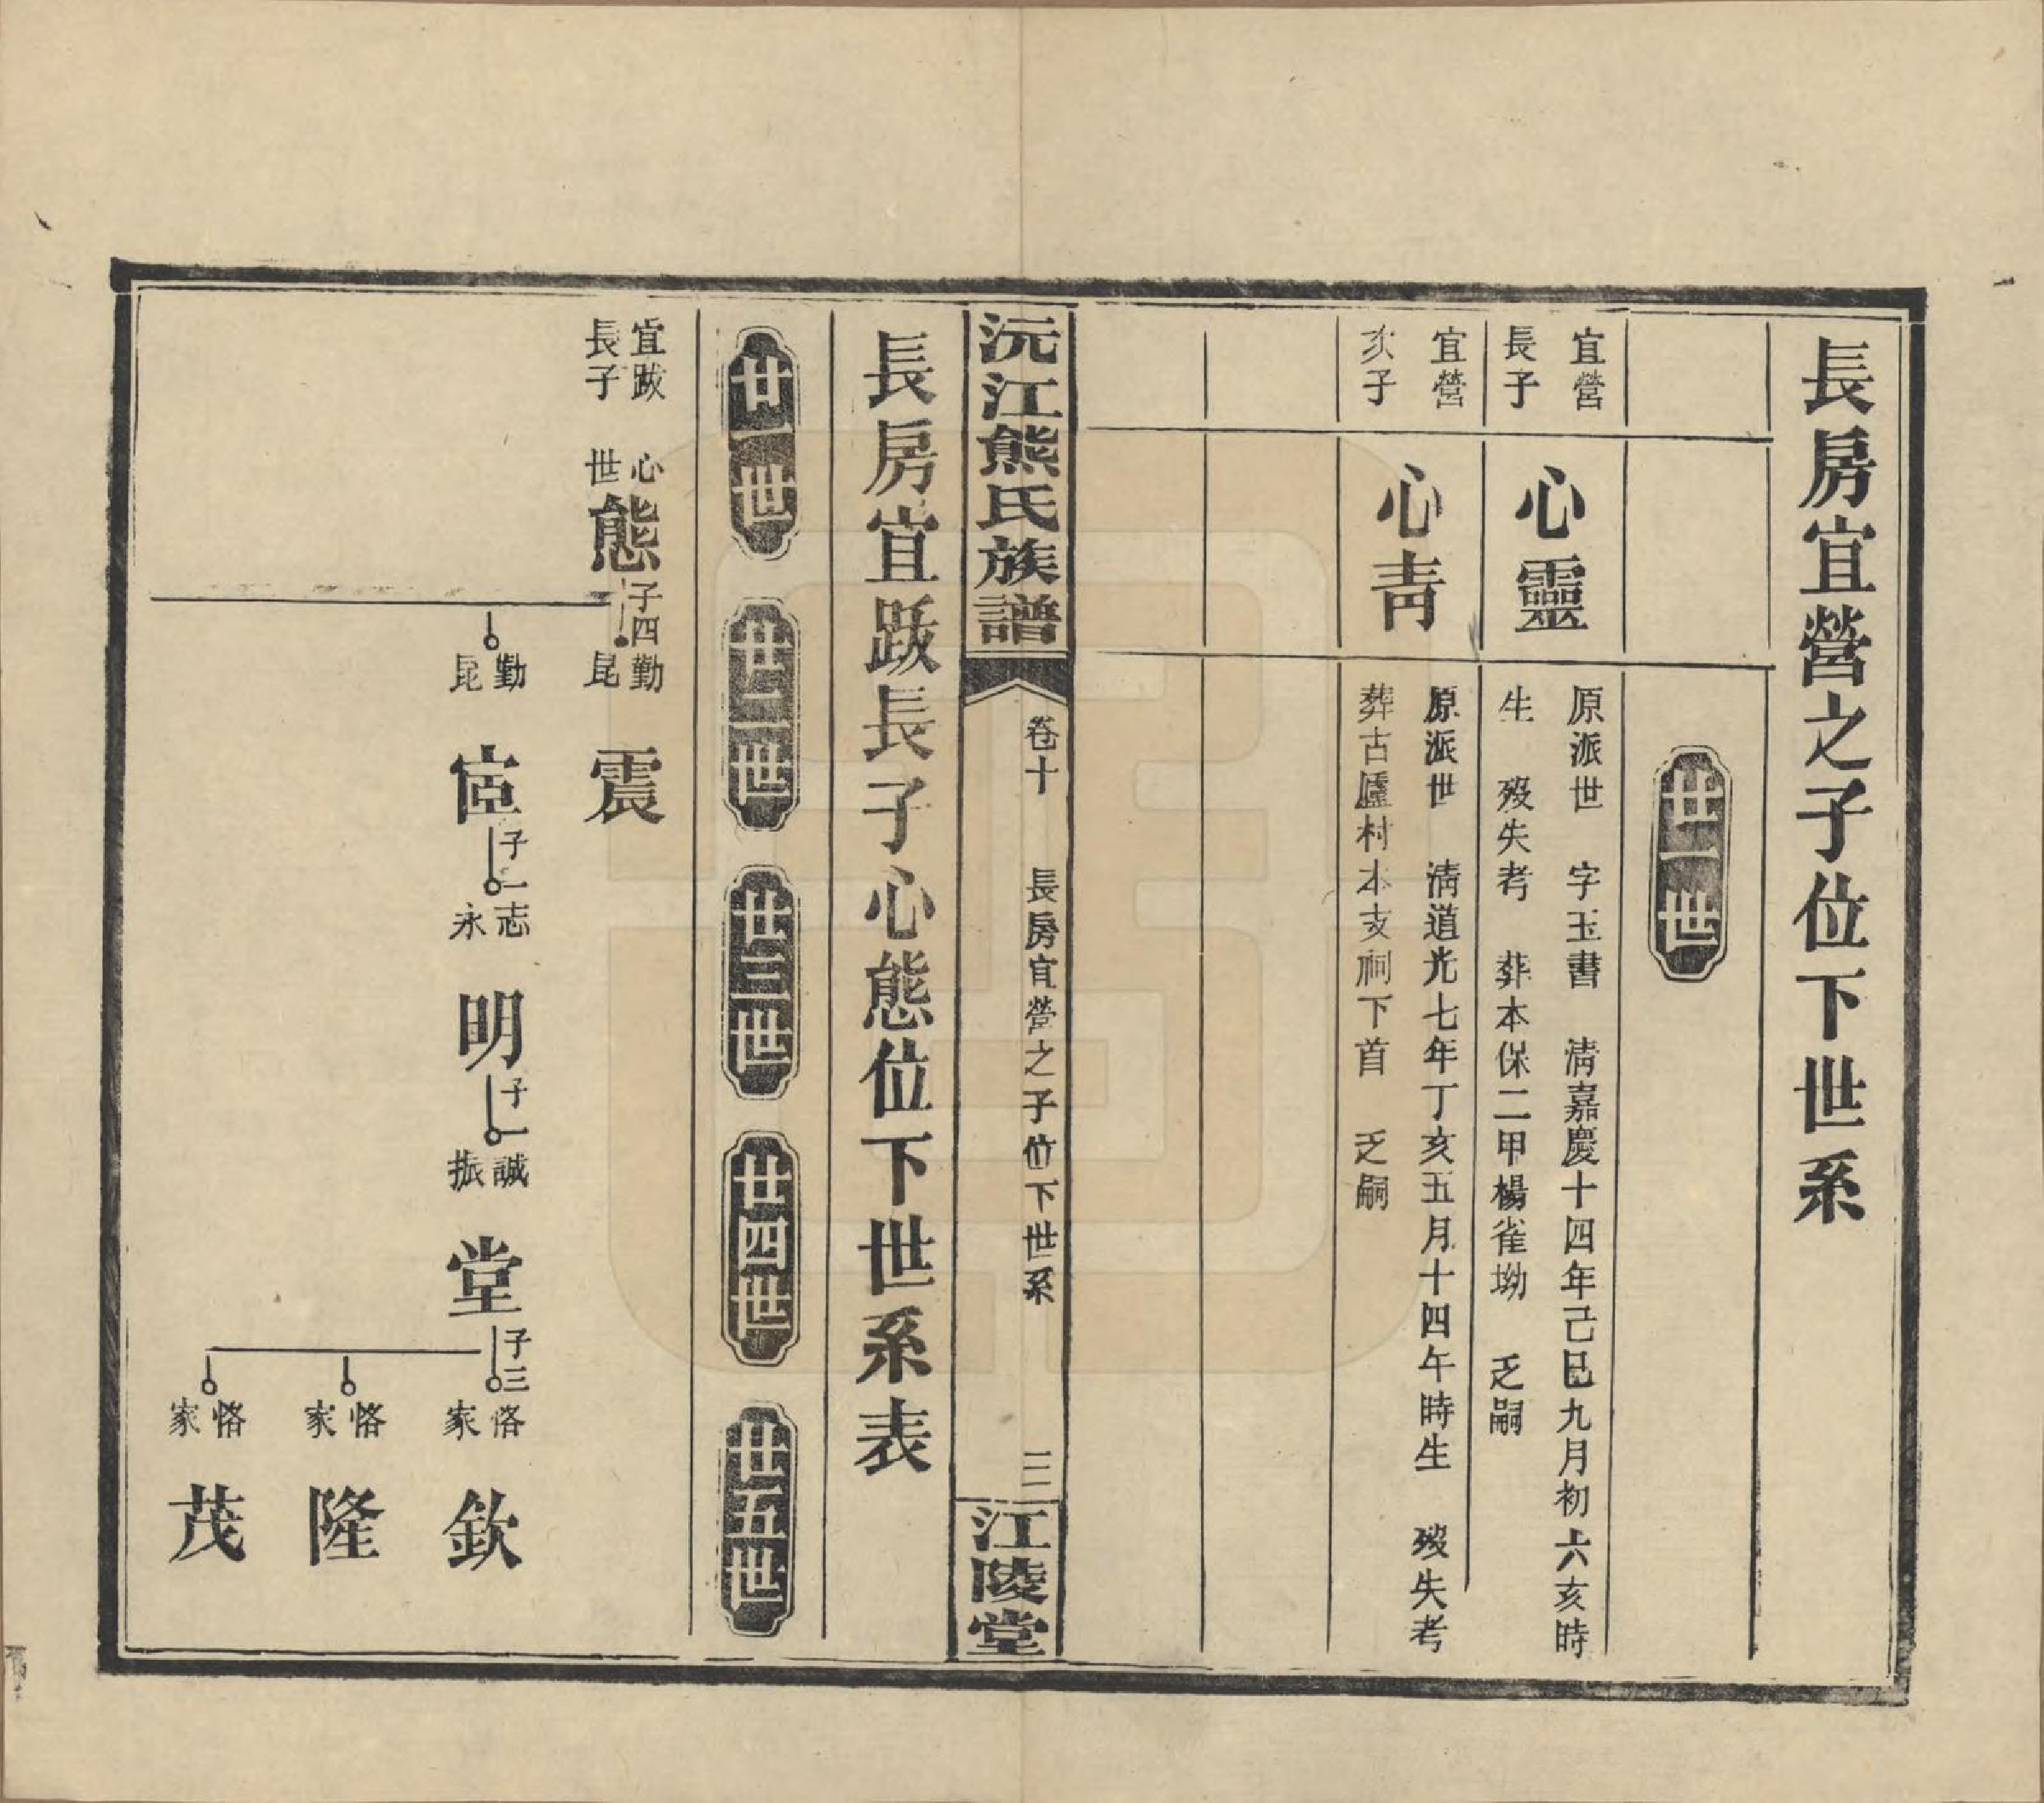 長房宜營之子位下世系
廿一世
宜營
長子
心靈
原派世　字玉書　清嘉慶十四年己巳九月初六亥時
生　歿失考　葬本保二甲楊雀坳　乏嗣
宜營
次子
心青
原派世　清道光七年丁亥五月十四午時生　歿失考
葬古廬村本支祠下首　乏嗣
沅江熊氏族譜
卷十　長房宜營之子位下世系　三
江陵堂
長房宜跋長子心態位下世系表
廿一世
廿二世
廿三世
廿四世
廿五世
宜跋
長子
心
世
態
子四
勤
昆
震
勤
昆
宦
子一
志
永
明
子一
誠
振
堂
子三
恪
家
欽
恪
家
隆
恪
家
茂